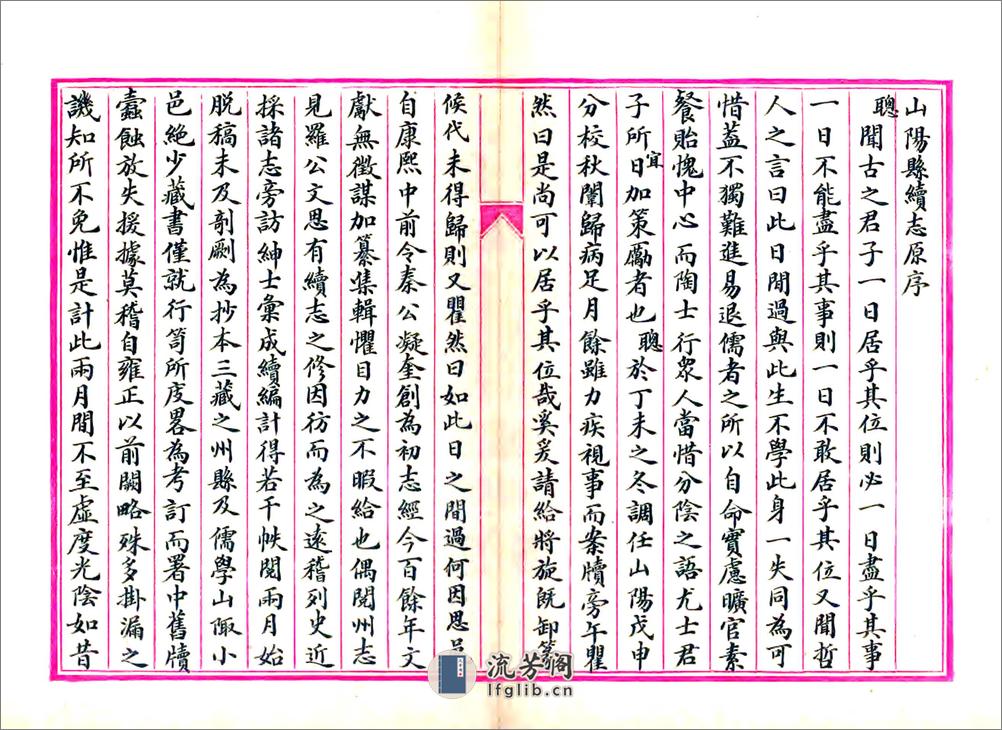 山陽縣續志原序
聰聞古之君子一日居乎其位則必一日盡乎其事
一日不能盡乎其事則一日不敢居乎其位又聞哲
人之言曰此日閒過與此生不學此身一失同為可
惜蓋不獨難進易退儒者之所以自命實慮曠官素
餐貽愧中心而陶士行眾人當惜分陰之語尤士君
子所宜日加策勵者也聰於丁未之冬調任山陽戊申
分校秋闈歸病足月餘雖力疾視事而案牘旁午瞿
然曰是尚可以居乎其位哉奚爰請給將旋既卸篆
候代未得歸則又瞿然曰如此日之閒過何因思邑
自康熙中前令秦公凝奎創為初志經今百餘年文
獻無徵謀加纂集輯懼目力之不暇給也偶閱州志
見羅公文思有續志之修因彷而為之遠稽列史近
採諸志旁訪紳士彙成續編計得若干帙閱兩月始
脫稿未及剞劂為抄本三藏之州縣及儒學山陬小
邑絶少藏書僅就行笥所庋畧為考訂而署中舊牘
蠹蝕放失援據莫稽自雍正以前闕略殊多掛漏之
譏知所不免惟是計此兩月間不至虛度光陰如昔
流芳阁
lfglib.cn